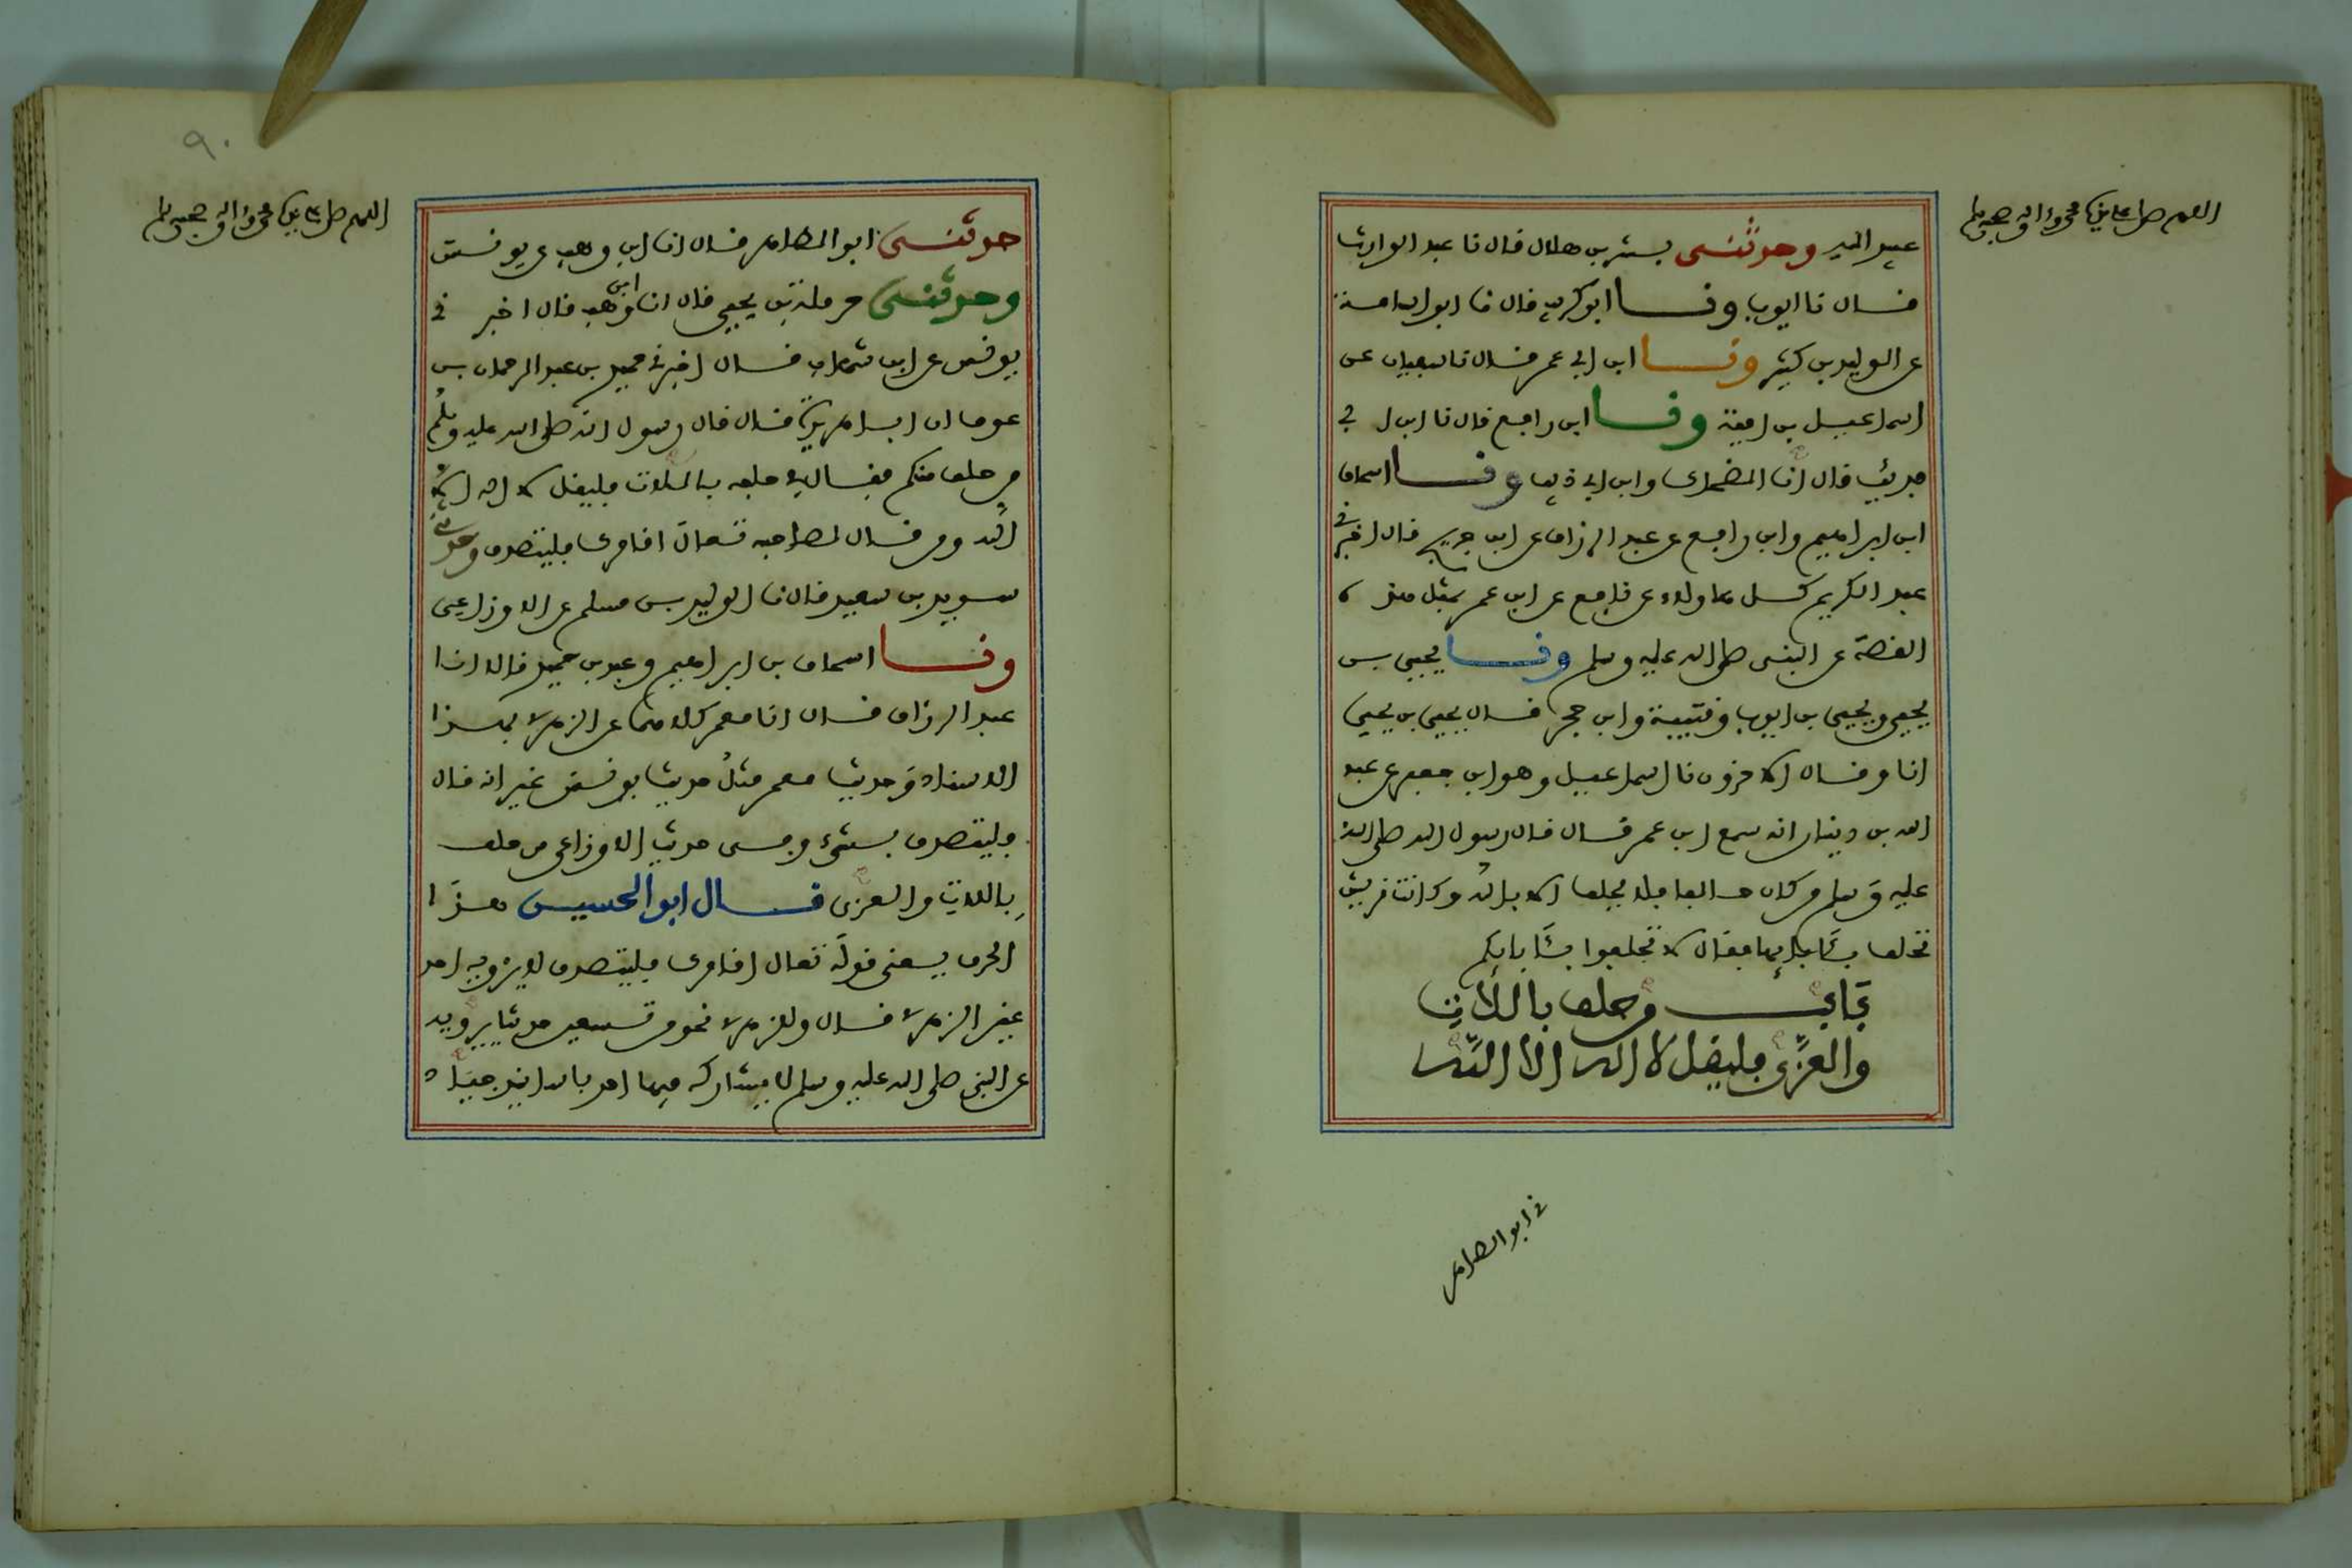 اللهم صل على نبينا محمد وءاله وصحبه وسلم
عبيد الله وحدثني بشر بن هلال قال نا عبد الوارث
قال نا ايوب ونا ابو كريب قال نا ابو اسامة
عن الوليد بن كثير ونا ابن ابي عمر قال نا سفيان عن
اسماعيل بن امية ونا ابن رافع قال نا ابن ا بي
فديك قال انا الضحاك وابن ابي ذيب ونا اسحاق
ابن ابراهيم وابن رافع عن عبد الرزاق عن ابن جريج قال اخبرني
عبد الكريم كل هاولاء عن نافع عن ابن عمر بمثل هذه
القصة عن النبي صلى الله عليه وسلم ونا يحيى بن
يحيى ويحيى بن ايوب وقتيبة وابن حجر قال يحيى بن يحيى
انا وقال الاخرون نا اسماعيل وهو ابن جعفر عن عبد
الله بن دينار انه سمع ابن عمر قال قال رسول الله صلى الله
عليه وسلم من كان حالفا فلا يحلف الا بالله وكانت قريش
تحلف بئابايها فقال لا تحلفوا بئابايكم
باب من حلف باللات
والعزى فليقل لا اله الا الله
ني ابو الطاهر
٩٠
اللهم صل على نبينا محمد وءاله وصحبه وسلم
حدثني ابو الطاهر قال انا ابن وهب عن يونس
وحدثني حرملة بن يحيى قال انا ابن وهب قال اخبر ني
يونس عن ابن شهاب قال اخبرني حميد بن عبد الرحمان بن
عوف ان ابا هريرة قال قال رسول الله صلى الله عليه وسلم
من حلف منكم فقال في حلفه باللات فليقل لا اله الا
الله ومن قال لصاحبه تعال اقامرك فليتصدق وحدثني
سويد بن سعيد قال نا الوليد بن مسلم عن الاوزاعي
ونا اسحاق بن ابراهيم وعبد بن حميد قالا انا
عبد الرزاق قال انا معمر كلاهما عن الزهري بهذا
الاسناد وحديث معمر مثل حديث يونس غير انه قال
فليتصدق بشيء وفي حديث الاوزاعي من حلف
باللات والعزى قال ابو الحسين هذا
الحرف يعني قوله تعال اقامرك فليتصدق لا يرويه احد
غير الزهري قال وللزهري نحو من تسعين حديثا يرويه
عن النبي صلى الله عليه وسلم لا يشاركه فيها احد باسانيد جياد